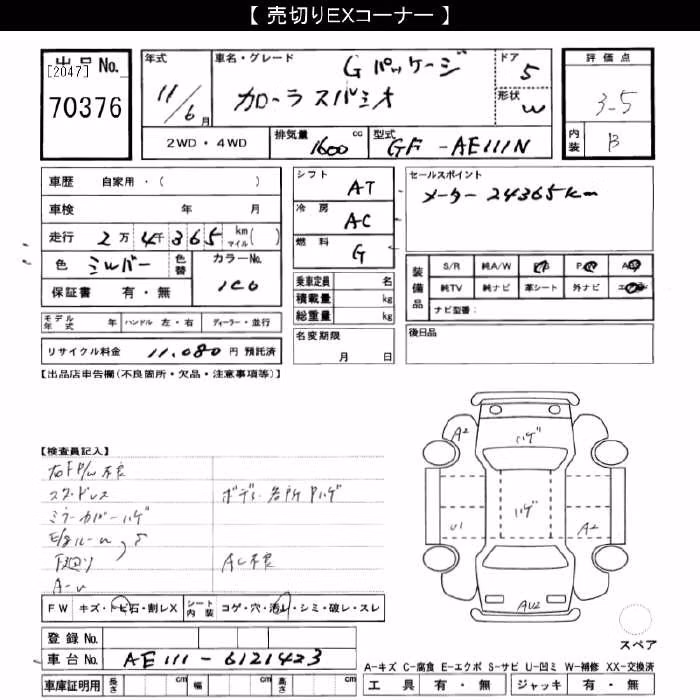 【 売切りEXコーナー 】
出品No.
[2047]
70376
年式
11/6月
車名・グレード
Gパッケージ
カローラスパシオ
ドア 5
形状 W
評価点
3-5
内装 B
2WD・4WD
排気量 1600 cc
型式 GF-AE111N
車歴 自家用・( )
車検 年 月
走行 2万4千365 km マイル( )
色 シルバー 色替 カラーNo. 1C0
保証書 有・無
モデル年式 年 ハンドル 左・右 ディーラー・並行
リサイクル料金 11,080 円 預託済
シフト AT
冷房 AC
燃料 G
乗車定員 名
積載量 kg
総重量 kg
名変期限
月 日
セールスポイント
メーター 24365km
装備品
S/R 純A/W P/S P/W A/B
純TV 純ナビ 革シート 外ナビ エアB
ナビ型番:
後日品
【出品店申告欄(不良箇所・欠品・注意事項等)】
【検査員記入】
右F P/W 不良
スク、ドレス
ボデー各所 Pハゲ
ミラーカバーハゲ
下廻り
AC不良
FW キズ・トビ石・割レX シート内装 コゲ・穴・汚レ・シミ・破レ・スレ
登録No.
車台No. AE111-6121423
車庫証明用 長さ cm 幅 cm 高さ cm
A2
ハゲ
ハゲ
U1
A2
AU2
スペア
A-キズ C-腐食 E-エクボ S-サビ U-凹ミ W-補修 XX-交換済
工具 有・無 ジャッキ 有・無